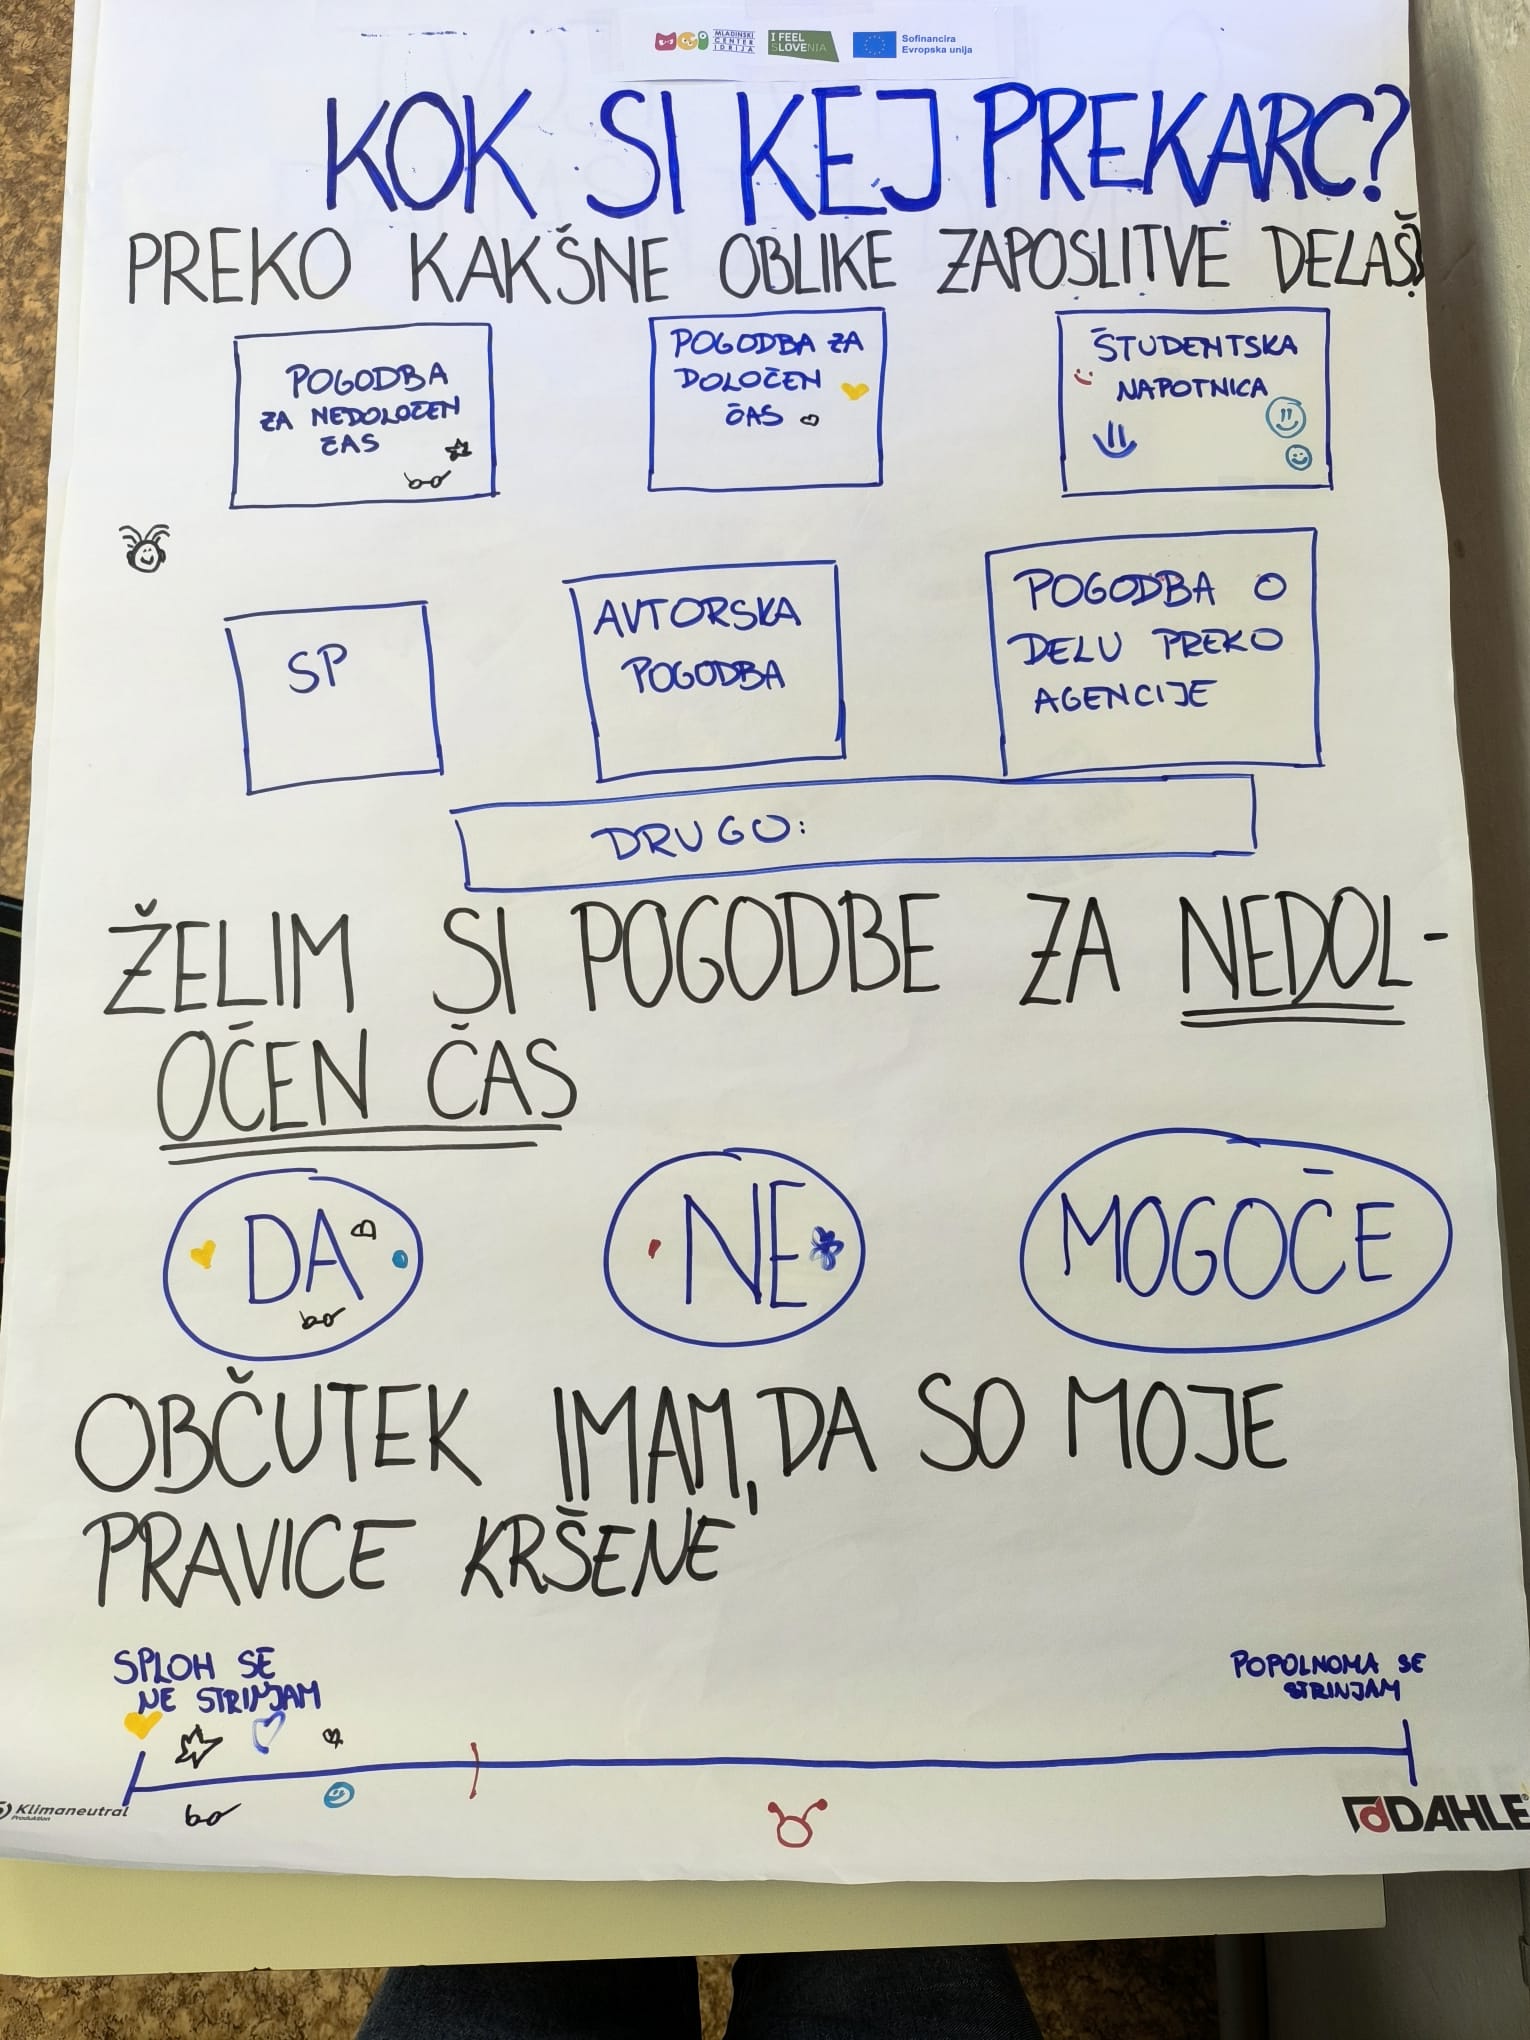 MLADINSKI
CENTER
IDRIJA
I FEEL
SLOVENIA
Sofinancira
Evropska unija
KOK SI KEJ PREKARC?
PREKO KAKŠNE OBLIKE ZAPOSLITVE DELAŠ?
POGODBA
ZA NEDOLOČEN
ČAS
POGODBA ZA
DOLOČEN
ČAS
ŠTUDENTSKA
NAPOTNICA
SP
AVTORSKA
POGODBA
POGODBA O
DELU PREKO
AGENCIJE
DRUGO:
ŽELIM SI POGODBE ZA NEDOL-
OČEN ČAS
DA
NE
MOGOČE
OBČUTEK IMAM, DA SO MOJE
PRAVICE KRŠENE
SPLOH SE
NE STRINJAM
POPOLNOMA SE
STRINJAM
Klimaneutral
Produktion
DAHLE